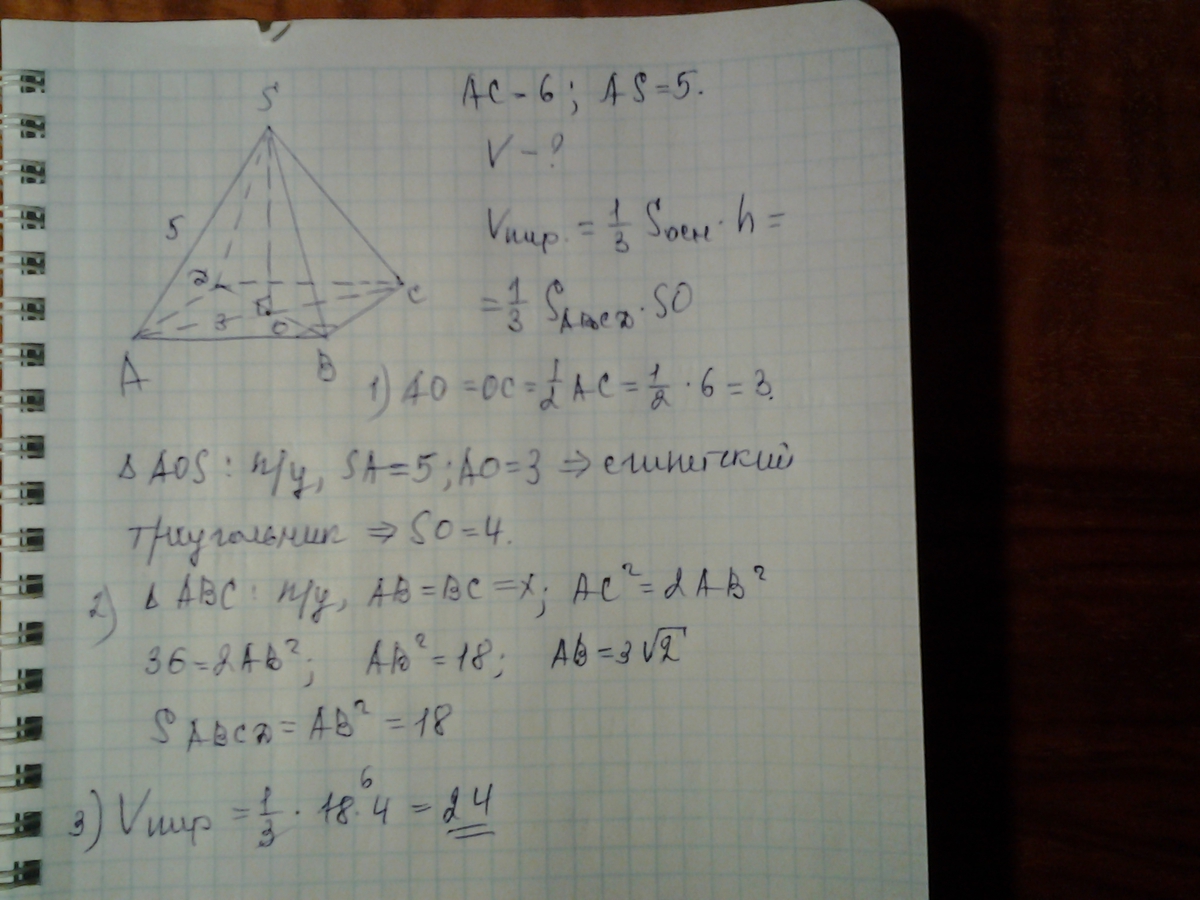 S
AC - 6; AS = 5.
V - ?
5
Vпир. = 1/3 Sосн · h =
D
C
= 1/3 SABCD · SO
3
O
A
B
1) AO = OC = 1/2 AC = 1/2 · 6 = 3.
Δ AOS: п/у, SA = 5; AO = 3 ⇒ египетский
треугольник ⇒ SO = 4.
2) Δ ABC: п/у, AB = BC = x; AC² = 2AB²
36 = 2AB²; AB² = 18; AB = 3√2
SABCD = AB² = 18
6
3) Vпир = 1/3 · 18 · 4 = 24